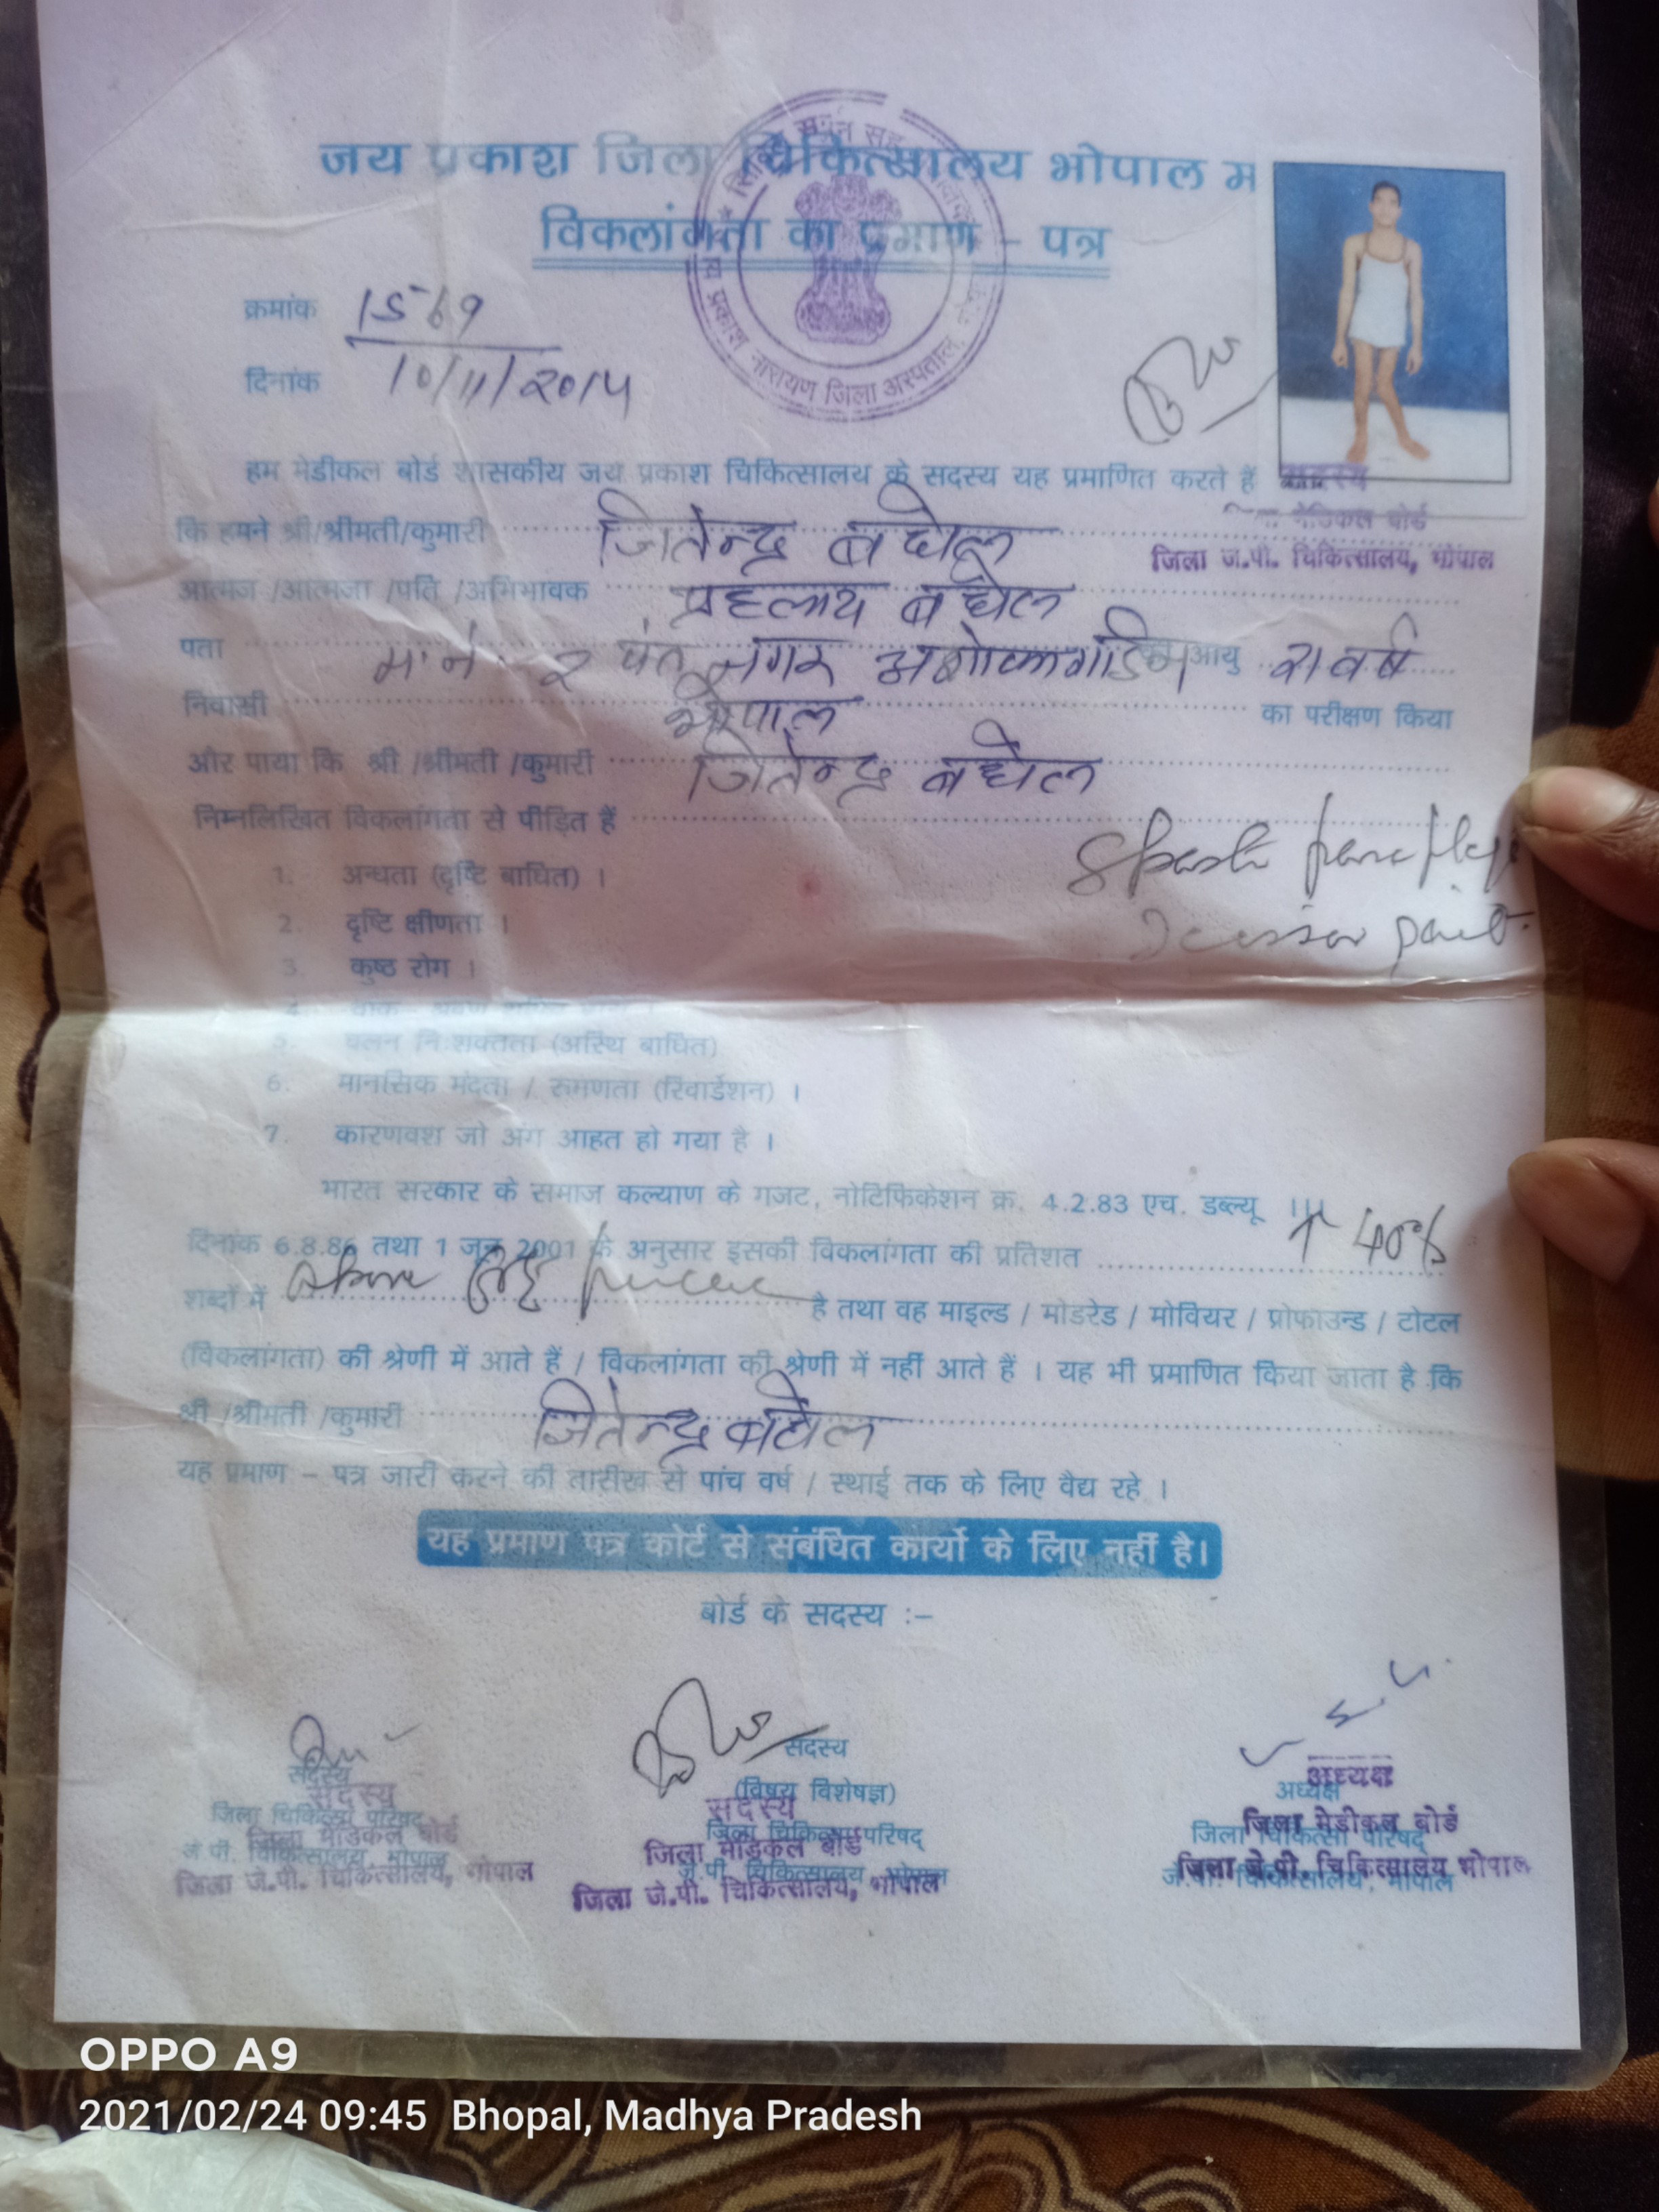 जय प्रकाश जिला चिकित्सालय भोपाल म
विकलांगता का प्रमाण – पत्र
क्रमांक 1569
दिनांक 10/11/2014
हम मेडीकल बोर्ड शासकीय जय प्रकाश चिकित्सालय के सदस्य यह प्रमाणित करते हैं
सदस्य
मेडिकल बोर्ड
जिला जे.पी. चिकित्सालय, भोपाल
कि हमने श्री/श्रीमती/कुमारी जितेन्द्र बघेल
आत्मज /आत्मजा /पति /अभिभावक प्रहलाद बघेल
पता म. नं. 2 पंत नगर अशोका गार्डन आयु 21 वर्ष
निवासी भोपाल का परीक्षण किया
और पाया कि श्री /श्रीमती /कुमारी जितेन्द्र बघेल
निम्नलिखित विकलांगता से पीड़ित हैं
1. अन्धता (दृष्टि बाधित) ।
2. दृष्टि क्षीणता ।
3. कुष्ठ रोग ।
5. चलन नि:शक्तता (अस्थि बाधित)
6. मानसिक मंदता / रुग्णता (रिटार्डेशन) ।
7. कारणवश जो अंग आहत हो गया है ।
भारत सरकार के समाज कल्याण के गजट, नोटिफिकेशन क्र. 4.2.83 एच. डब्ल्यू III
दिनांक 6.8.86 तथा 1 जून 2001 के अनुसार इसकी विकलांगता की प्रतिशत ↑ 40%
शब्दों में Above है तथा वह माइल्ड / मोडरेड / मोवियर / प्रोफाउन्ड / टोटल
(विकलांगता) की श्रेणी में आते हैं / विकलांगता की श्रेणी में नहीं आते हैं । यह भी प्रमाणित किया जाता है कि
श्री /श्रीमती /कुमारी जितेन्द्र बघेल
यह प्रमाण – पत्र जारी करने की तारीख से पांच वर्ष / स्थाई तक के लिए वैद्य रहे ।
यह प्रमाण पत्र कोर्ट से संबंधित कार्यो के लिए नहीं है।
बोर्ड के सदस्य :–
सदस्य
जिला चिकित्सा परिषद्
जे.पी. चिकित्सालय, भोपाल
सदस्य
जिला मेडिकल बोर्ड
जिला जे.पी. चिकित्सालय, भोपाल
सदस्य
(विषय विशेषज्ञ)
जिला चिकित्सा परिषद्
जे.पी. चिकित्सालय, भोपाल
सदस्य
जिला मेडिकल बोर्ड
जिला जे.पी. चिकित्सालय, भोपाल
अध्यक्ष
जिला चिकित्सा परिषद्
जे.पी. चिकित्सालय, भोपाल
अध्यक्ष
जिला मेडीकल बोर्ड
जिला जे.पी. चिकित्सालय भोपाल
OPPO A9
2021/02/24 09:45 Bhopal, Madhya Pradesh